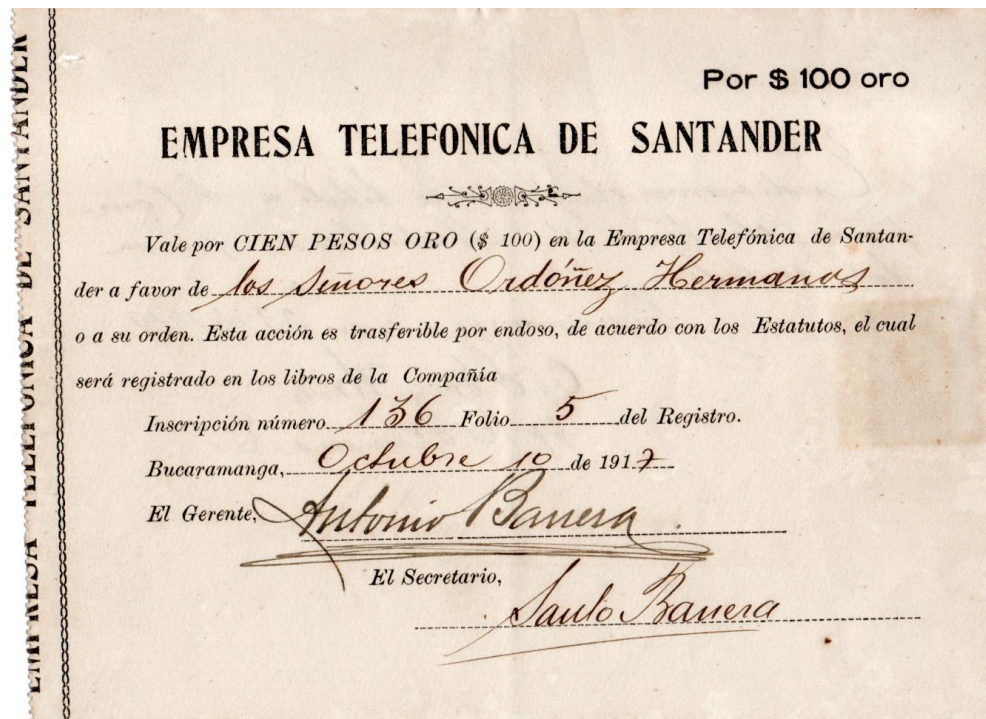 Por $ 100 oro
EMPRESA TELEFONICA DE SANTANDER
Vale por CIEN PESOS ORO ($ 100) en la Empresa Telefónica de Santan-
der a favor de los señores Ordóñez Hermanos
o a su orden. Esta acción es trasferible por endoso, de acuerdo con los Estatutos, el cual
será registrado en los libros de la Compañía
Inscripción número 136 Folio 5 del Registro.
Bucaramanga, Octubre 10 de 1917
El Gerente, Antonio Barrera
El Secretario,
Saulo Barrera
EMPRESA TELEFONICA DE SANTANDER